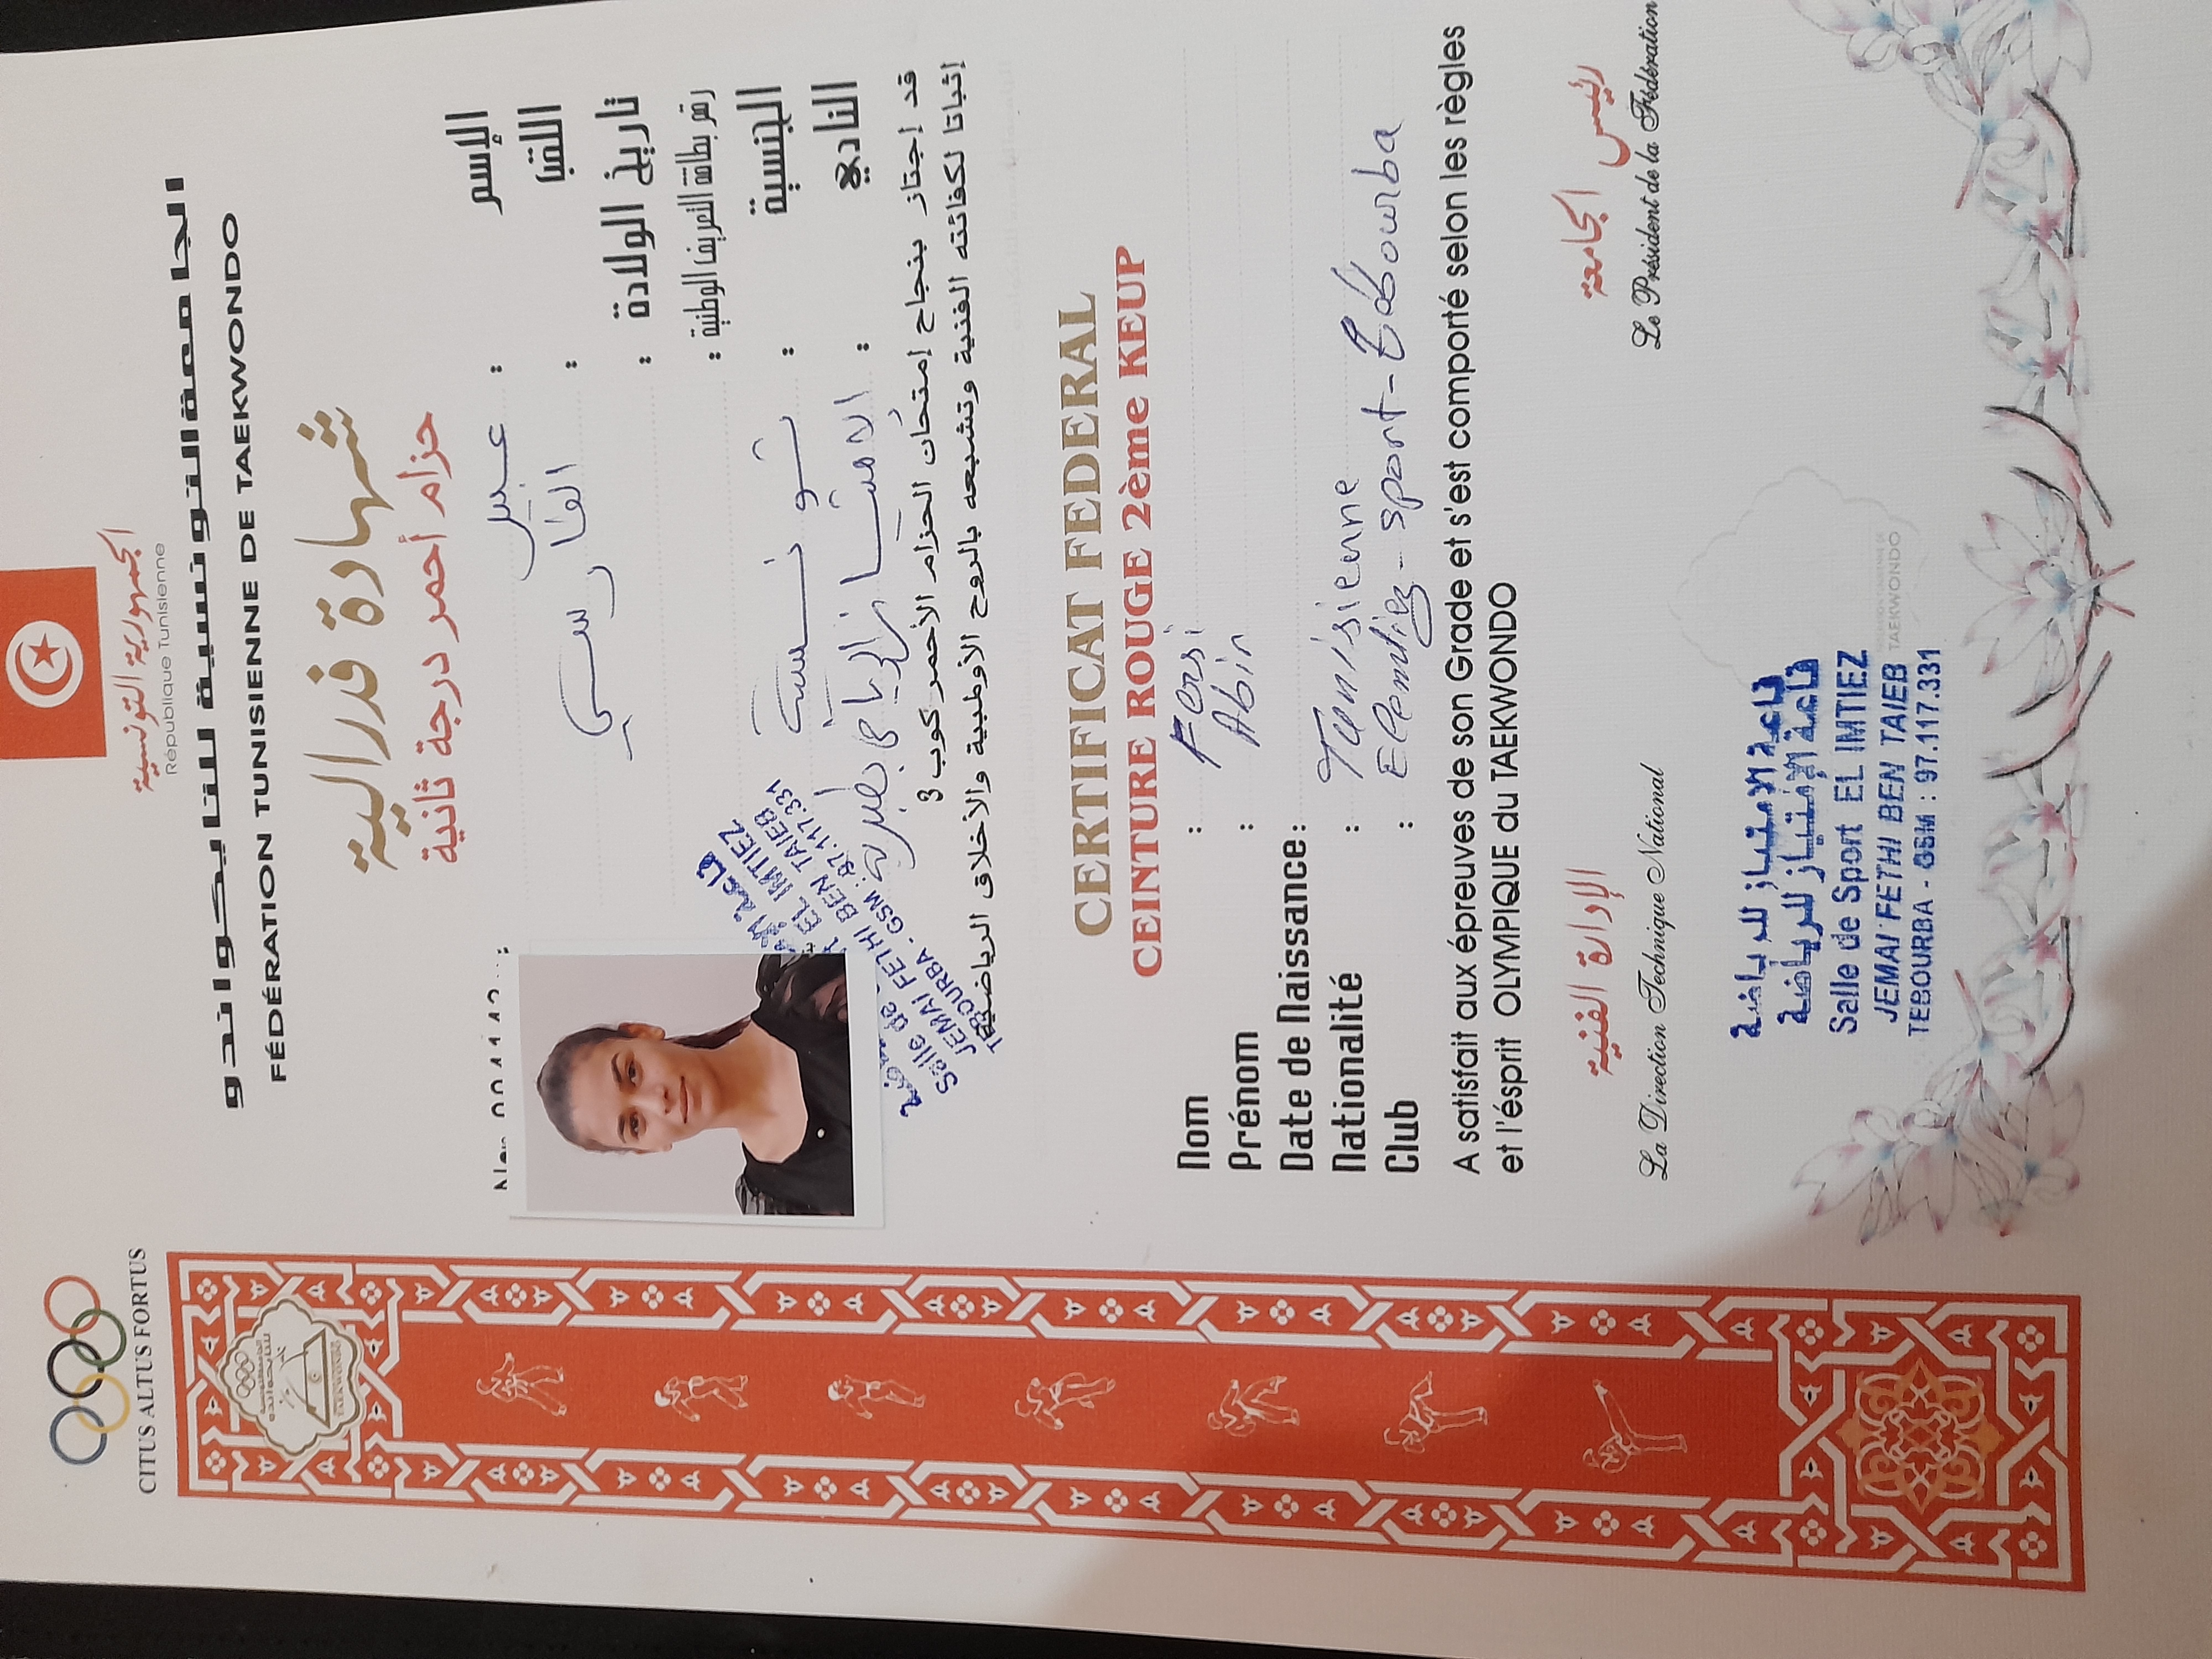 CITUS ALTUS FORTUS
الجمهورية التونسية
République Tunisienne
الجامعة التونسية للتايكواندو
FÉDÉRATION TUNISIENNE DE TAEKWONDO
شهادة فدرالية
حزام أحمر درجة ثانية
الإسم : عبير
اللقب : الفارسي
تاريخ الولادة :
رقم بطاقة التعريف الوطنية :
الجنسية : تونسية
النادي : الامتياز الرياضي بطبربة
قد إجتاز بنجاح إمتحان الحزام الأحمر كوب 3
إثباتا لكفائته الفنية وتشبعه بالروح الأولمبية والأخلاق الرياضية
Salle de EL IMTIEZ
JEMAI FETHI BEN TAIEB
TEBOURBA - GSM : 97.117.331
CERTIFICAT FEDERAL
CEINTURE ROUGE 2ème KEUP
Nom : Fersi
Prénom : Abir
Date de Naissance :
Nationalité : Tunisienne
Club : Elemtiez-sport-Tebourba
A satisfait aux épreuves de son Grade et s'est comporté selon les règles
et l'ésprit OLYMPIQUE du TAEKWONDO
الإدارة الفنية
La Direction Technique National
رئيس الجامعة
Le Président de la Fédération
قاعة الامتياز للرياضة
قاعة الإمتياز للرياضة
Salle de Sport EL IMTIEZ
JEMAI FETHI BEN TAIEB
TEBOURBA - GSM : 97.117.331
TAEKWONDO